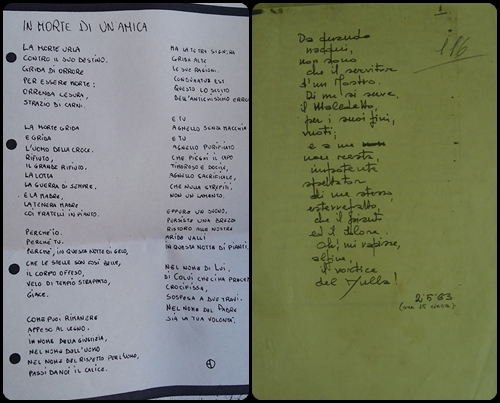 IN MORTE DI UN'AMICA
LA MORTE URLA
CONTRO IL SUO DESTINO.
GRIDA DI ORRORE
PER ESSERE MORTE:
ORRENDA CESURA,
STRAZIO DI CARNI.
LA MORTE GRIDA
E GRIDA
L'UOMO DELLA CROCE.
RIFIUTO,
IL GRANDE RIFIUTO.
LA LOTTA
LA GUERRA DI SEMPRE,
E LA MADRE,
LA TENERA MADRE
COI FRATELLI IN PIANTO.
PERCHÉ IO.
PERCHÉ TU.
PERCHÉ, IN QUESTA NOTTE DI GELO,
CHE LE STELLE SON COSÌ BELLE,
IL CORPO OFFESO,
VELO DI TEMPIO STRAPPATO,
GIACE.
COME PUOI RIMANERE
APPESO AL LEGNO.
IN NOME DELLA GIUSTIZIA,
NEL NOME DELL'UOMO
NEL NOME DEL RISPETTO PER L'UOMO,
PASSI DA NOI IL CALICE.
MA LA TETRA SIGNORA
GRIDA ALTE
LE SUE RAGIONI.
CONSUMATUM EST
QUESTO LO SCELTO
DELL'ANTICHISSIMO ERRORE
E TU
AGNELLO SENZA MACCHIA
E TU
AGNELLO PURIFICATO
CHE PIEGHI IL CAPO
TIMOROSO E DOCILE,
AGNELLO SACRIFICALE,
CHE NULLA STREPITI,
NON UN LAMENTO.
EPPURE UN SEGNO,
PORGESTE UNA BREZZA
RISTORO ALLE NOSTRE
ARIDE VALLI
IN QUESTA NOTTE DI PIANTI.
NEL NOME DI LUI.
DI COLUI CHE CI HA
CROCIFISSA,
SOSPESA A DUE TRAVI.
NEL NOME DEL PADRE
SIA LA TUA VOLONTÀ.
1
116
Da quando
nacqui,
non sono
che il servitore
d'un Mostro.
Di me si serve,
il Maledetto,
per i suoi fini,
vuoti,
e a me
non resta,
impotente
spettator
di me stesso,
esterrefatto,
che il pianto
ed il dolore.
Ohi, mi rapisce,
alfine,
il vortice
del Nulla!
2.5.63
(ore 15 circa)